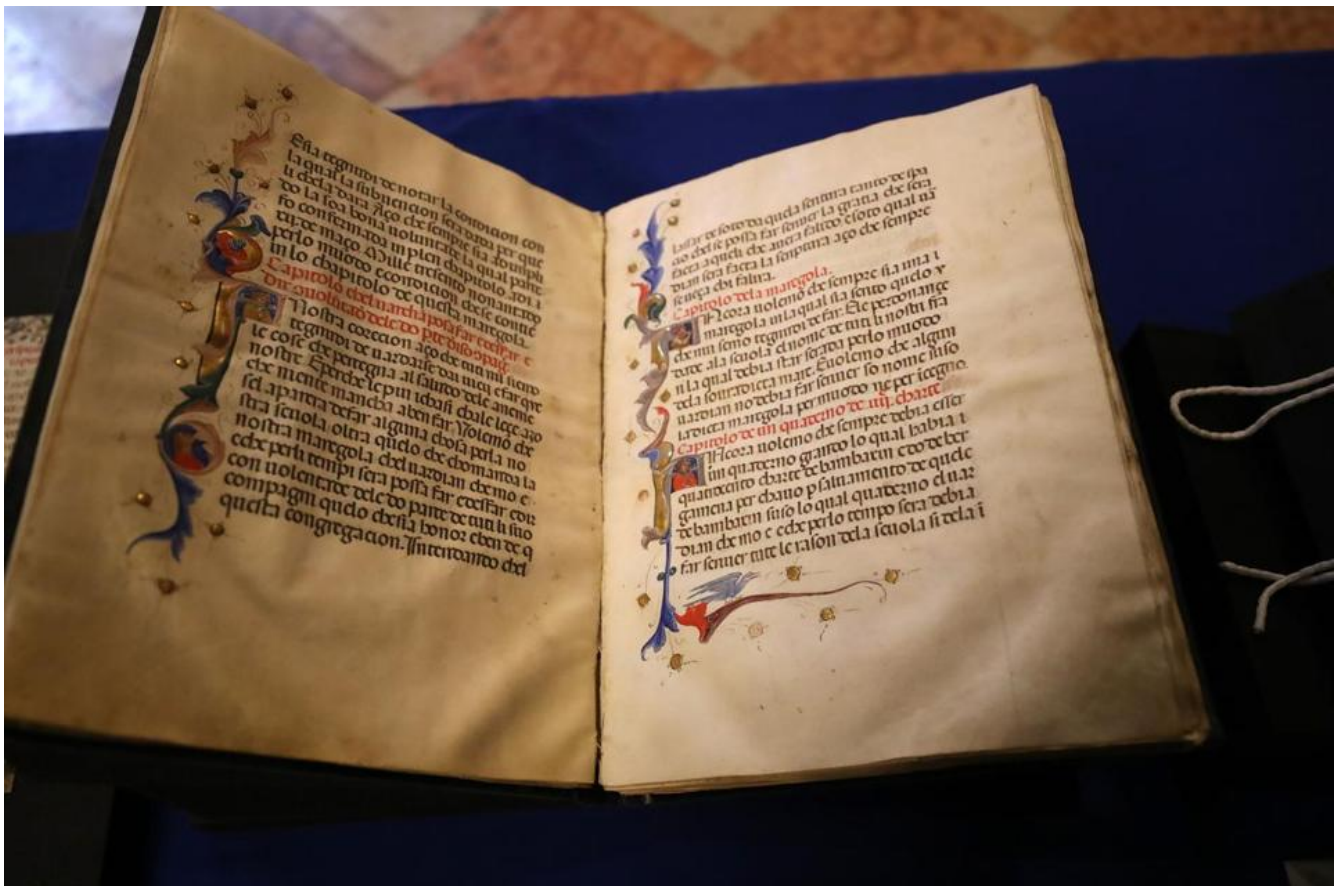 E sia tegnudi de notar la condicion con
la qual la subuencion sera dada per que
li chela dara. Aço che sempre sia adimpli
do la soa bona uoluntate la qual parte
fo confermada in plen chapitolo adi ı
de março. Mille tresento nonantado
perlo muodo econdicion chese contie
in lo chapitolo de questa mariegola.
Capitolo chel uardian possa far edesfar e
dir auoluntade dele do pte di so 9pagni
Nostra corecion aço che tuti mi sieno
tegnudi de uardarse dai uicii efar que
le cose che pertegna al sauudo dele aneme
nostre. Eperche le piu uchasi chale leçe aço
che mente mancha aben far. Volemo che
sel apartera defar alguna chosa perla no
stra scuola. oltra quelo che chomanda la
nostra mariegola chel uardian che mo e
eche perli tempi sera possa far edesfar edir
con uolentade dele do parte de tuti li suo
compagni quelo chesia bon oz eben de q
questa congregacion. Intendando chel
lassar de soto da quela scritura tanto de spa
cio chel se possa far scriuer la gracia che sera
facta aqueli che auera falido esoto qual uā
dian sera facta la scriptura aço che sempre
se ueça chi falira.
Capitolo dela mariegola.
Ancora uolemo che sempre sia una ı
mariegola in la qual sia scrito quelo ɤ
che nui semo tegnudi de far. E le perdonançe
dade ala scuola el nome de tuti li nostri fra
n la qual debia star serada perlo muodo
dela souradicta mare. Euolemo che algun
uardian no debia far scriuer so nome suso
la dicta mariegola per muodo ne per içegno.
Capitolo de un quaderno de iiij. charte
Ancora uolemo che sempre debia esser
un quaderno grando lo qual habia ı
quatrocento charte de bambaxin edo de ber
gamena per chauo p saluamento de quele
de bambaxin suso lo qual quaderno el uar
dian che mo e eche perlo tempo sera debia
far scriuer tute le rason dela scuola si dela ī